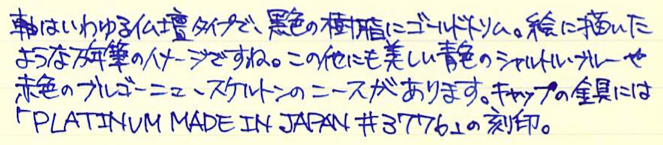 軸はいわゆる仏壇タイプで、黒色の樹脂にゴールドトリム。絵に描いた
ような万年筆のイメージですね。この他にも美しい青色のシャルトル・ブルーや
赤色のブルゴーニュ、スケルトンのニースがあります。キャップの金具には
「PLATINUM MADE IN JAPAN #3776」の刻印。